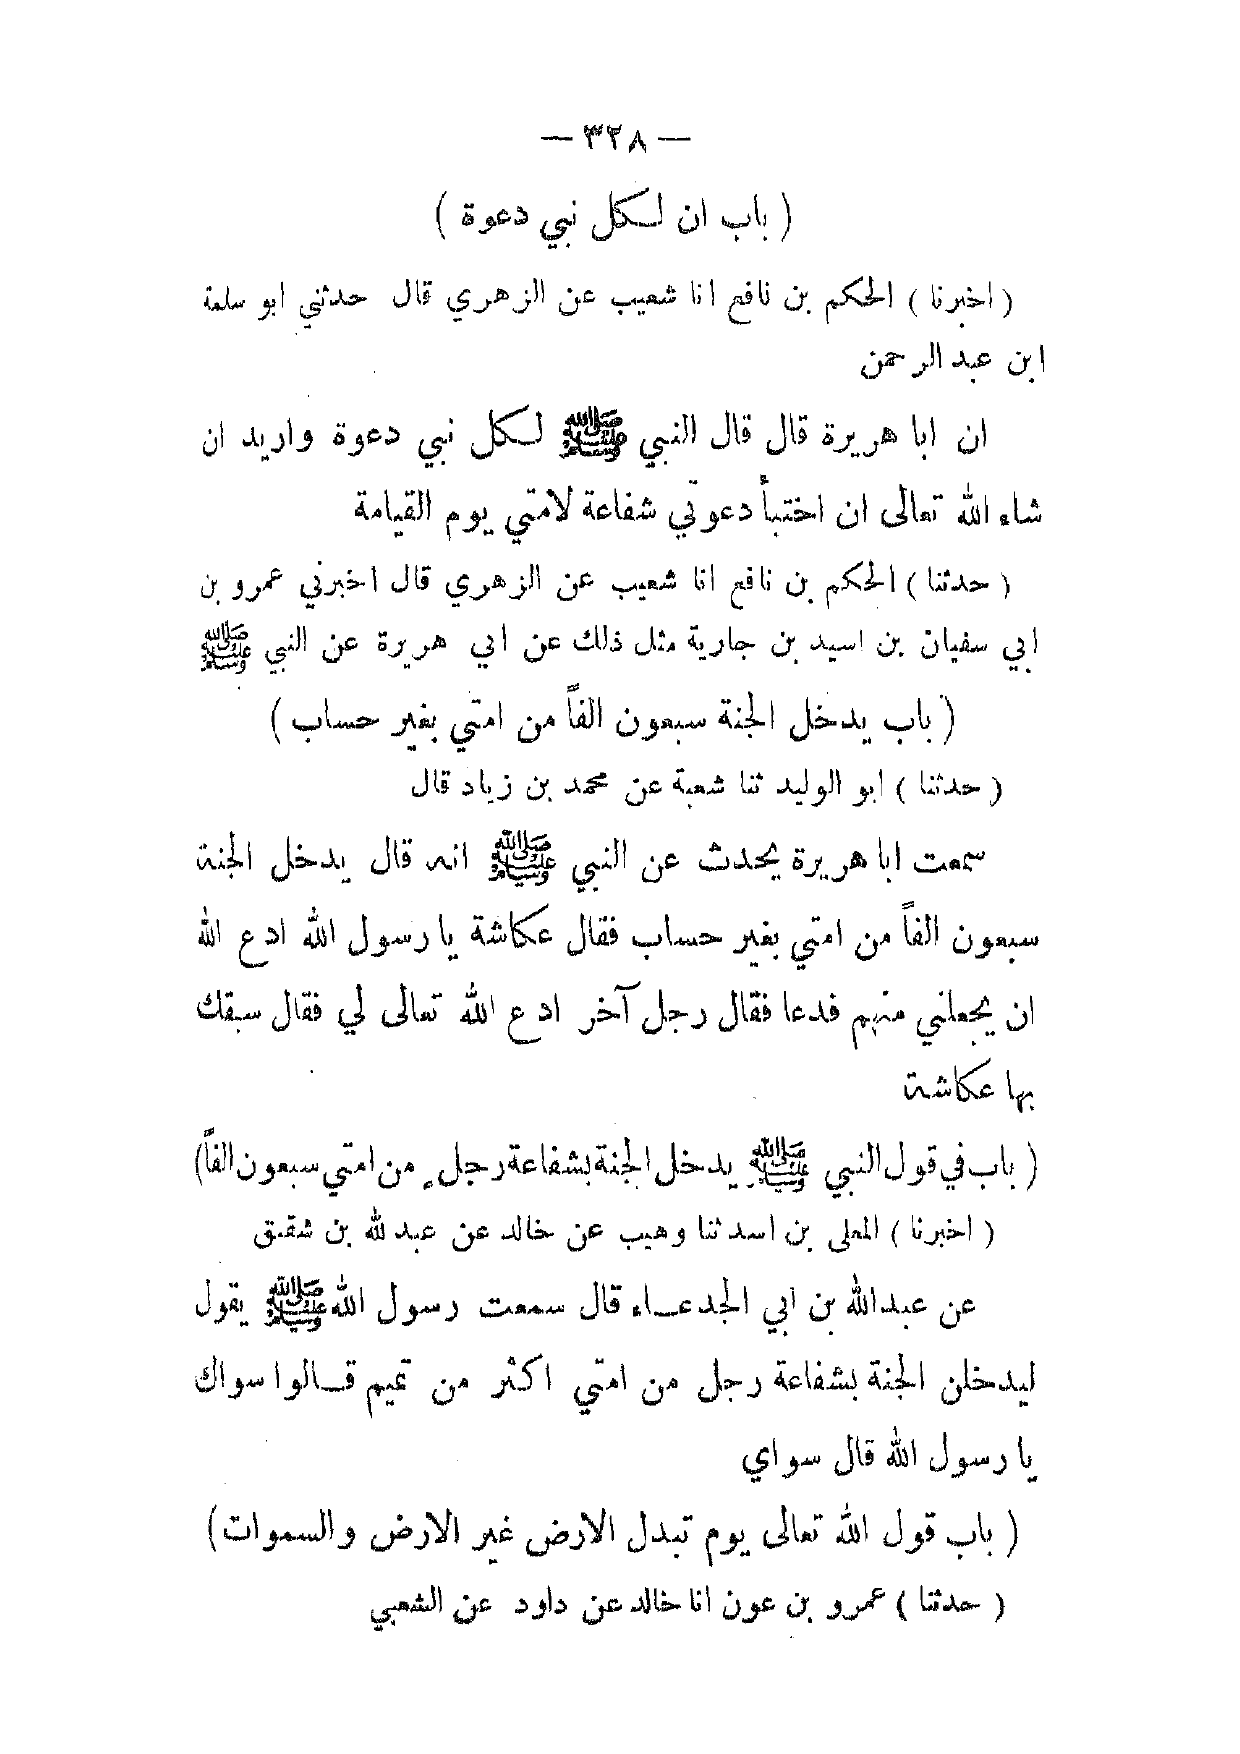 — ٣٢٨ —
( باب ان لكل نبي دعوة )
( اخبرنا ) الحكم بن نافع انا شعيب عن الزهري قال حدثني ابو سلمة
ابن عبد الرحمن
ان ابا هريرة قال قال النبي ﷺ لكل نبي دعوة واريد ان
شاء الله تعالى ان اختبأ دعوتي شفاعة لامتي يوم القيامة
( حدثنا ) الحكم بن نافع انا شعيب عن الزهري قال اخبرني عمرو بن
ابي سفيان بن اسيد بن جارية مثل ذلك عن ابي هريرة عن النبي ﷺ
( باب يدخل الجنة سبعون الفاً من امتي بغير حساب )
( حدثنا ) ابو الوليد ثنا شعبة عن محمد بن زياد قال
سمعت ابا هريرة يحدث عن النبي ﷺ انه قال يدخل الجنة
سبعون الفاً من امتي بغير حساب فقال عكاشة يا رسول الله ادع الله
ان يجعلني منهم فدعا فقال رجل آخر ادع الله تعالى لي فقال سبقك
بها عكاشة
( باب في قول النبي ﷺ يدخل الجنة بشفاعة رجل من امتي سبعون الفاً )
( اخبرنا ) المعلى بن اسد ثنا وهيب عن خالد عن عبد لله بن شقيق
عن عبد الله بن ابي الجدعاء قال سمعت رسول الله ﷺ يقول
ليدخلن الجنة بشفاعة رجل من امتي اكثر من تميم قالوا سواك
يا رسول الله قال سواي
( باب قول الله تعالى يوم تبدل الارض غير الارض والسموات )
( حدثنا ) عمرو بن عون انا خالد عن داود عن الشعبي